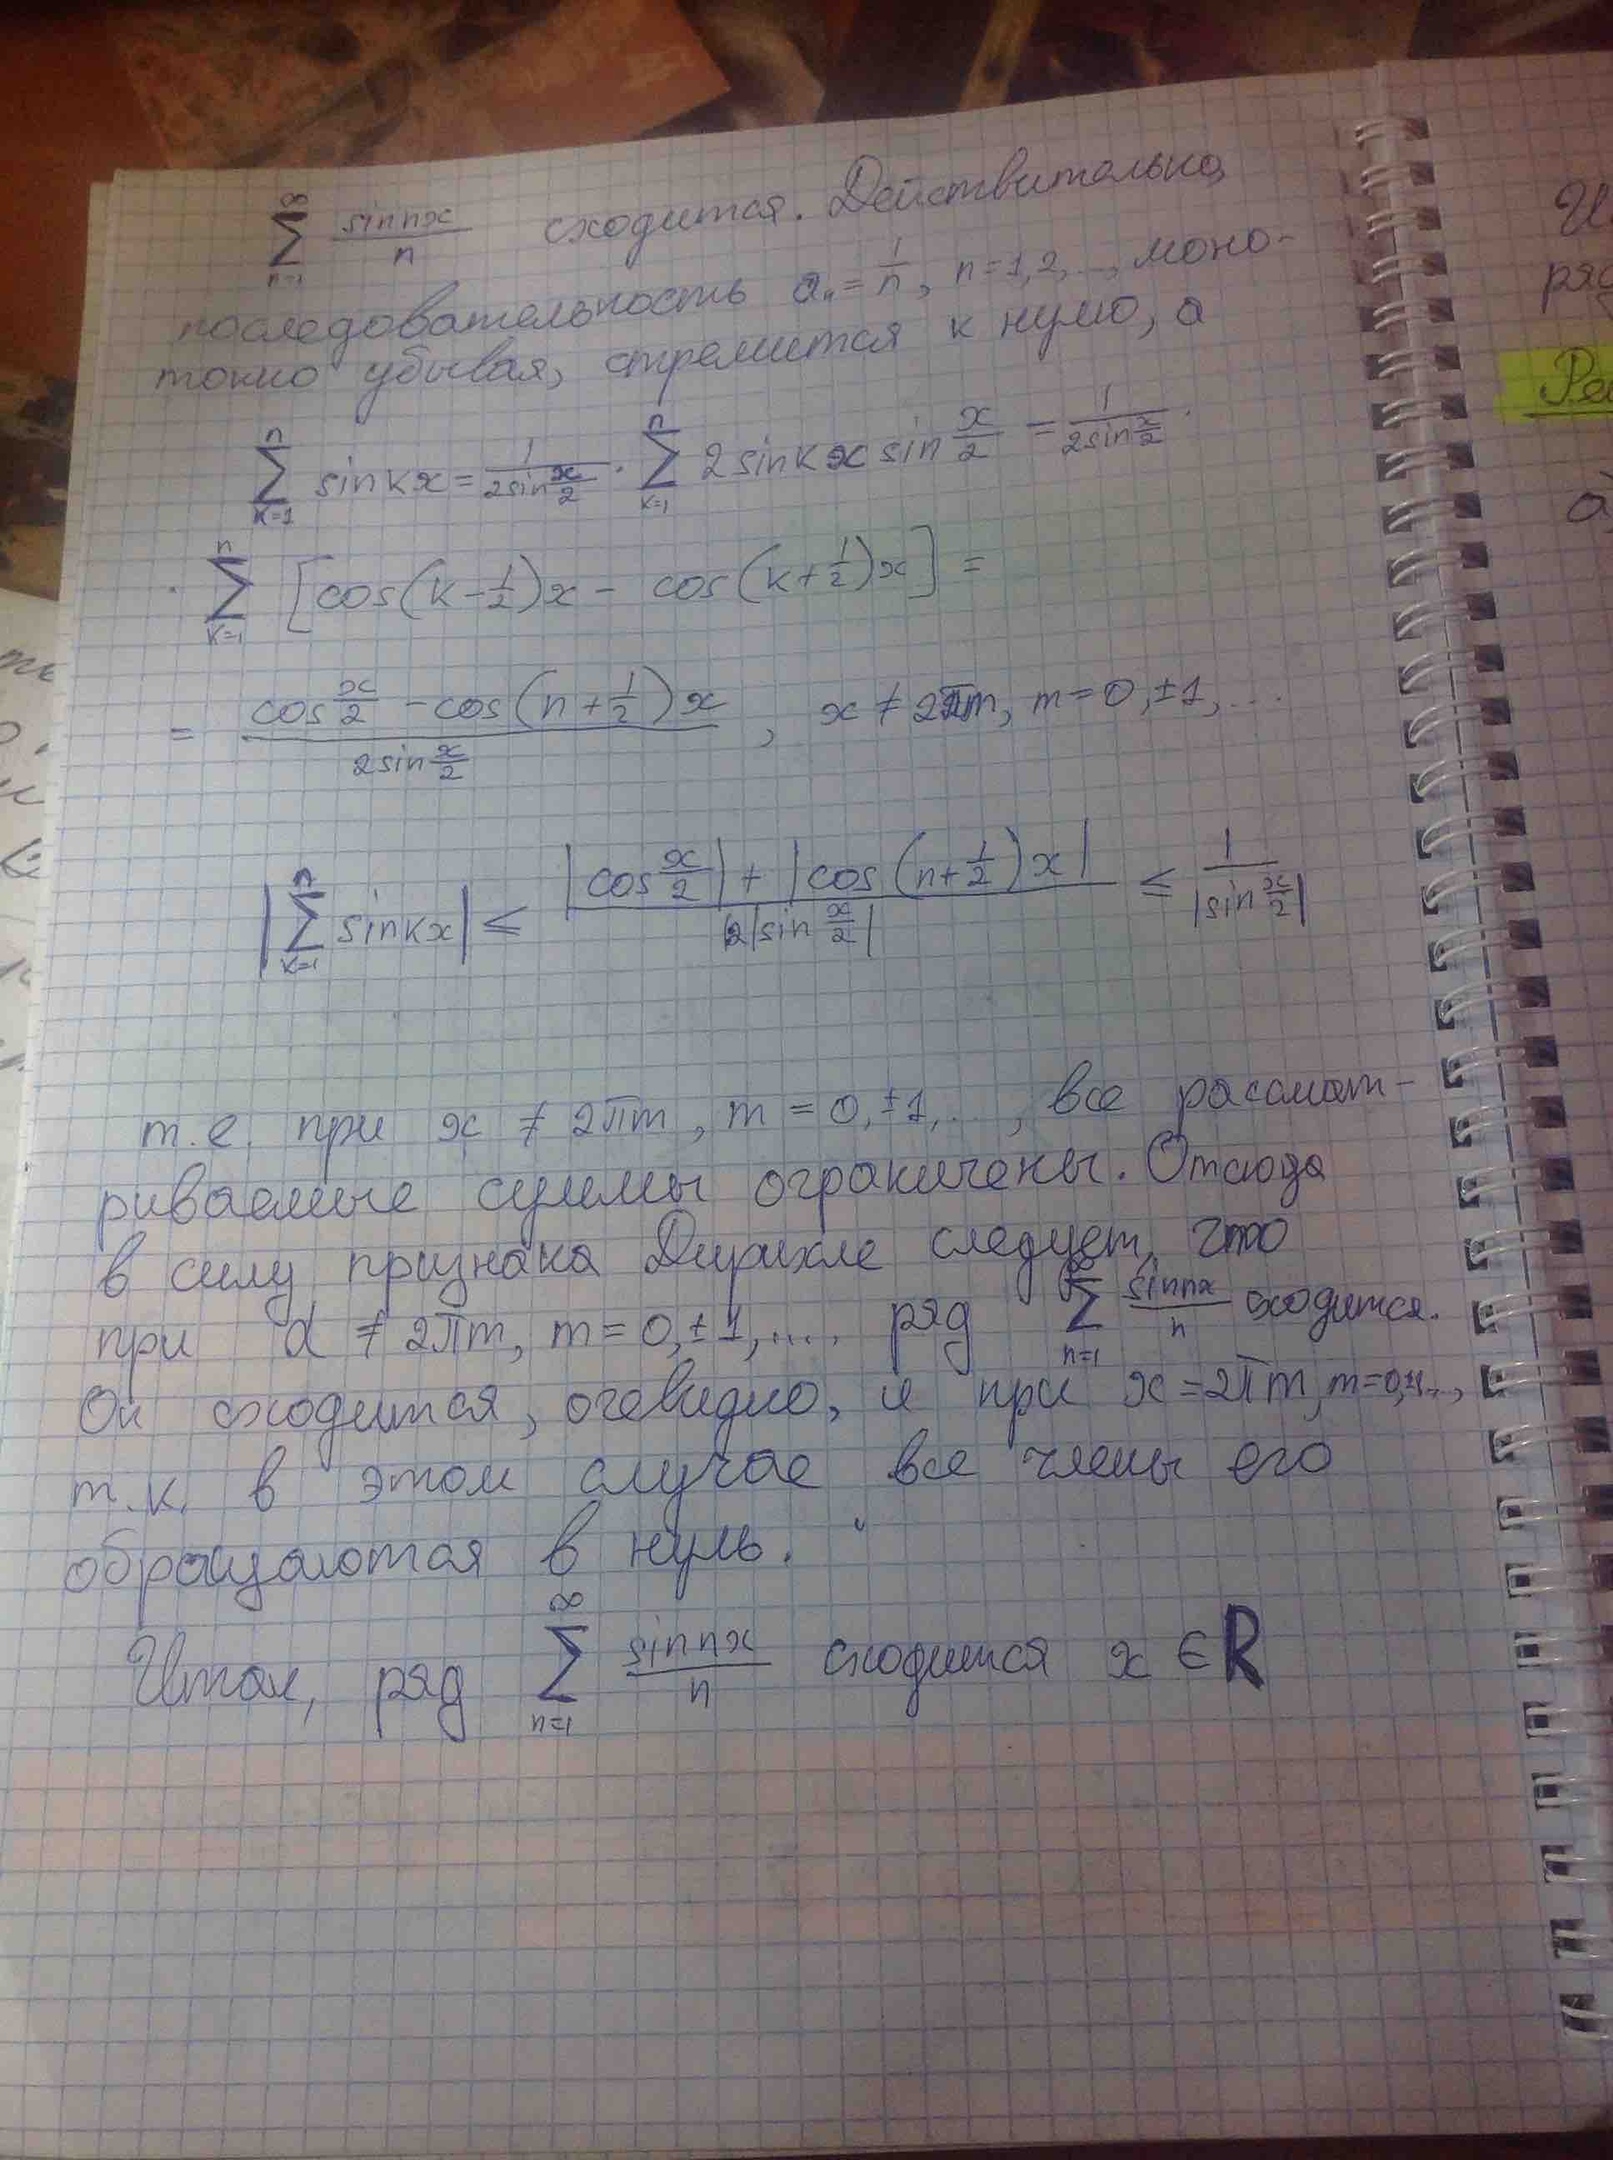 ∞∑n=1 sin nx / n сходится. Действительно,
последовательность aₙ = 1/n, n = 1, 2, ..., моно-
тонно убывая, стремится к нулю, а
n∑k=1 sin kx = 1/(2 sin x/2) · n∑k=1 2 sin kx sin x/2 = 1/(2 sin x/2) ·
· n∑k=1 [cos(k - 1/2)x - cos(k + 1/2)x] =
= (cos x/2 - cos(n + 1/2)x) / (2 sin x/2), x ≠ 2πm, m = 0, ±1, ...
|n∑k=1 sin kx| ≤ (|cos x/2| + |cos(n + 1/2)x|) / (2|sin x/2|) ≤ 1/|sin x/2|
т.е. при x ≠ 2πm, m = 0, ±1, ..., все рассмат-
риваемые суммы ограничены. Отсюда
в силу признака Дирихле следует, что
при α ≠ 2πm, m = 0, ±1, .... ряд ∞∑n=1 sin nx / n сходится.
Он сходится, очевидно, и при x = 2πm, m = 0, ±1...,
т.к. в этом случае все члены его
обращаются в нуль.
Итак, ряд ∞∑n=1 sin nx / n сходится x ∈ R